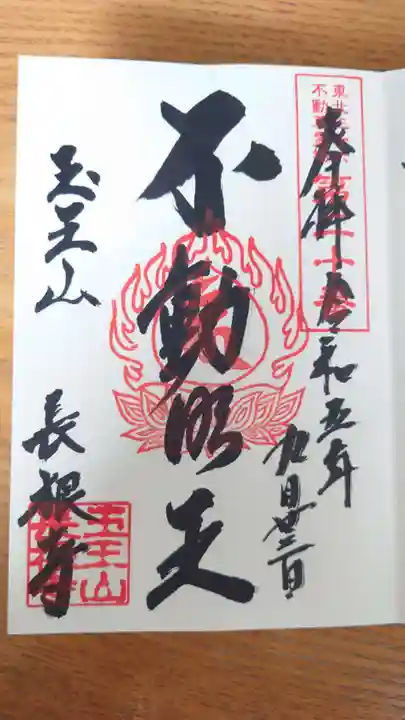 東北三十六
不動尊霊場
第二十番
奉拝 令和五年
九月廿三日
不動明王
玉王山
長根寺
玉王山